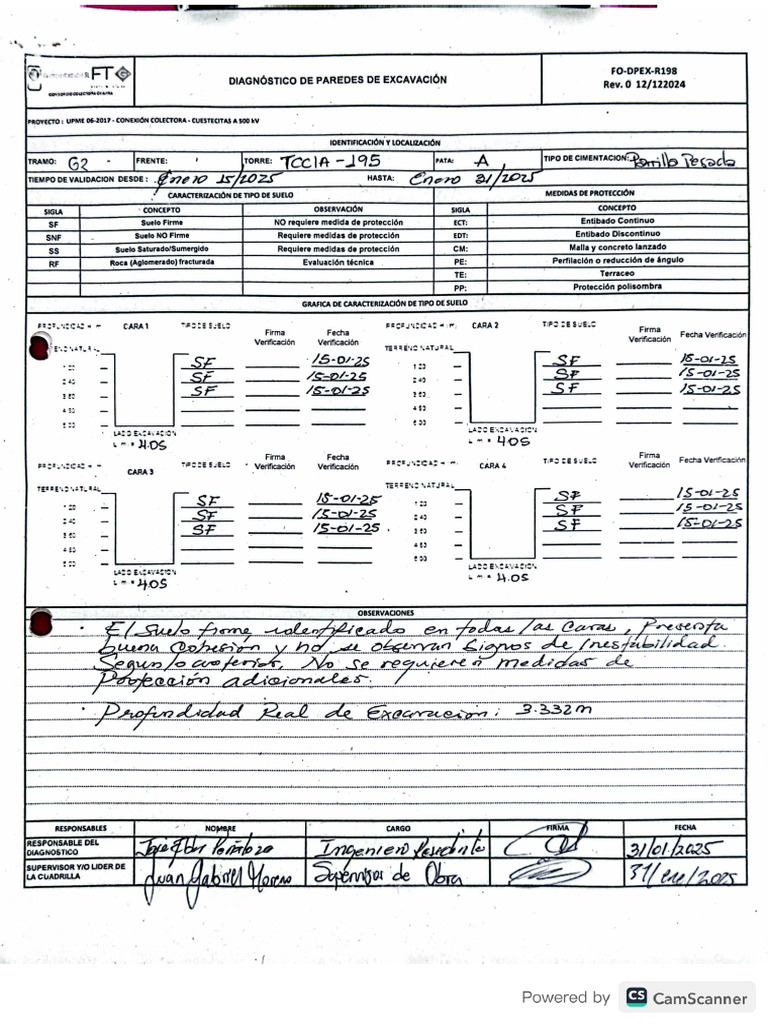 FT
CONSORCIO COLECTORA GUAJIRA
DIAGNÓSTICO DE PAREDES DE EXCAVACIÓN
FO-DPEX-R198
Rev. 0 12/122024
PROYECTO: UPME 06-2017 - CONEXIÓN COLECTORA - CUESTECITAS A 500 kV
IDENTIFICACIÓN Y LOCALIZACIÓN
TRAMO: G2 - FRENTE: TORRE: TCC1A-195 PATA: A TIPO DE CIMENTACION: Parrilla Pesada
TIEMPO DE VALIDACION DESDE: Enero 15/2025 HASTA: Enero 31/2025
CARACTERIZACIÓN DE TIPO DE SUELO MEDIDAS DE PROTECCIÓN
SIGLA CONCEPTO OBSERVACIÓN SIGLA CONCEPTO
SF Suelo Firme NO requiere medida de protección ECT: Entibado Continuo
SNF Suelo NO Firme Requiere medidas de protección EDT: Entibado Discontinuo
SS Suelo Saturado/Sumergido Requiere medidas de protección CM: Malla y concreto lanzado
RF Roca (Aglomerado) fracturada Evaluación técnica PE: Perfilación o reducción de ángulo
TE: Terraceo
PP: Protección polisombra
GRAFICA DE CARACTERIZACIÓN DE TIPO DE SUELO
CARA 1 TIPO DE SUELO Firma Verificación Fecha Verificación
TERRENO NATURAL
SF 15-01-25
SF 15-01-25
SF 15-01-25
LADO EXCAVACIÓN
4.05
CARA 2 TIPO DE SUELO Firma Verificación Fecha Verificación
TERRENO NATURAL
SF 15-01-25
SF 15-01-25
SF 15-01-25
LADO EXCAVACIÓN
4.05
CARA 3 TIPO DE SUELO Firma Verificación Fecha Verificación
TERRENO NATURAL
SF 15-01-25
SF 15-01-25
SF 15-01-25
LADO EXCAVACIÓN
4.05
CARA 4 TIPO DE SUELO Firma Verificación Fecha Verificación
TERRENO NATURAL
SF 15-01-25
SF 15-01-25
SF 15-01-25
LADO EXCAVACIÓN
4.05
OBSERVACIONES
· El Suelo firme identificado en todas las Caras, Presenta
buena Cohesión y no se observan Signos de Inestabilidad.
Segun lo anterior, No se requieren medidas de
Protección adicionales.
· Profundidad Real de Excavación: 3.332m
RESPONSABLES NOMBRE CARGO FIRMA FECHA
RESPONSABLE DEL DIAGNÓSTICO Peñaloza Ingeniero Residente 31/01/2025
SUPERVISOR Y/O LIDER DE LA CUADRILLA Juan Gabriel Moreno Supervisor de Obra 31/ene/2025
Powered by CS CamScanner